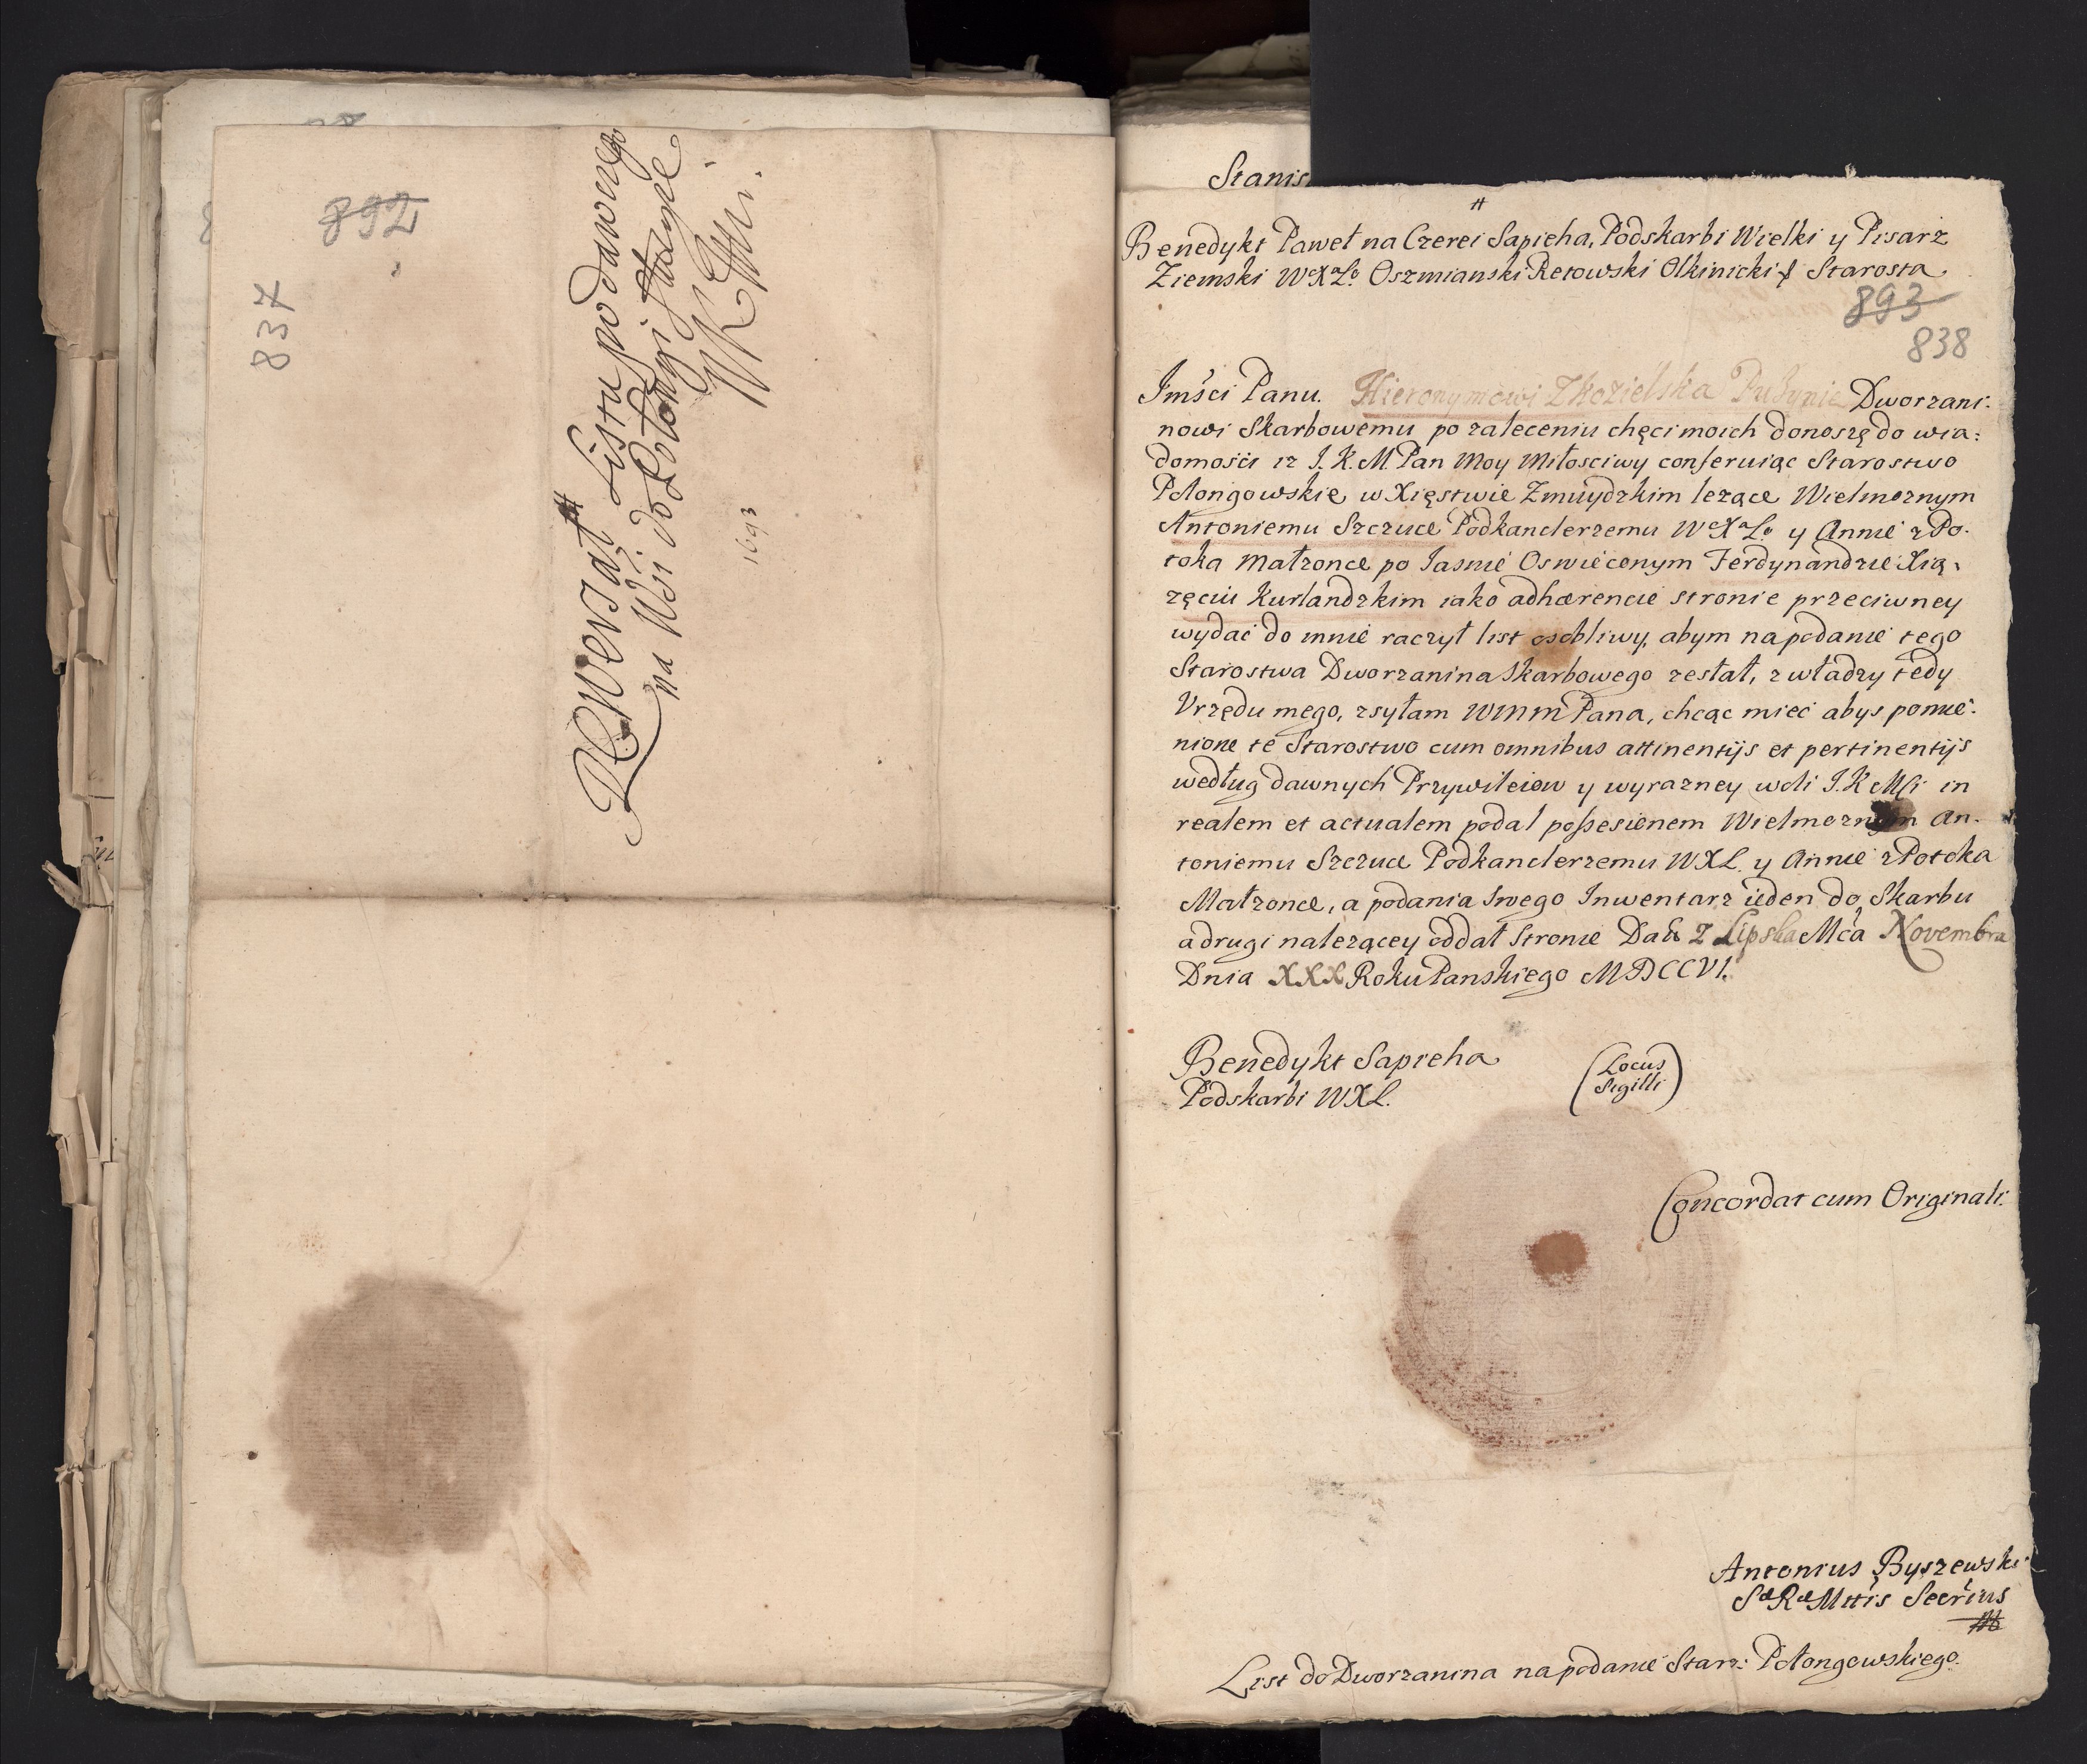 892
837
Rewersał Listu podawczego
na Wsi do Połongi
1693
Stanis
Benedykt Paweł na Czerei Sapieha, Podskarbi Wielki y Pisarz
Ziemski WXL. Oszmianski Retowski Olkinicki & Starosta
893
838
Jmści Panu. Hieronymowi Zkozielska Puzynie Dworzani:
nowi Skarbowemu po zaleceniu chęci moich donoszę do wia:
domości iz J. K. M Pan Moy Miłosciwy conferuiąc Starostwo
Połongowskie w Xięstwie Zmuydzkim lezące Wielmoznym
Antoniemu Szczuce Podkanclerzemu WXL y Annie z Po-
toka Małzonce po Jasnie Oswieconym Ferdynandzie Xią-
zęciu Kurlandzkim iako adhærencie stronie przeciwney
wydać do mnie raczył list osobliwy, abym na podanie tego
Starostwa Dworzanina Skarbowego zesłał, z władzy tedy
Vrzędu mego, zsyłam WMM Pana, chcąc mieć abys pomie-
nione te Starostwo cum omnibus attinentijs et pertinentijs
według dawnych Przywileiow y wyrazney woli J. K Msi in
realem et actualem podal possesionem Wielmoznym An-
toniemu Szczuce Podkanclerzemu WXL. y Annie z Potoka
Małzonce, a podania swego Inwentarz ieden do Skarbu
a drugi nalezącey oddał stronie Dań z Lipska Mca Novembra
Dnia XXX Roku Panskiego MDCCVI.
Benedykt Sapieha
Podskarbi WXL.
(Locus
Sigilli)
Concordat cum Originali.
Antonius Byszewski
SæRæMttis Secrius
List do Dworzanina na podanie Starz: Połongowskiego.